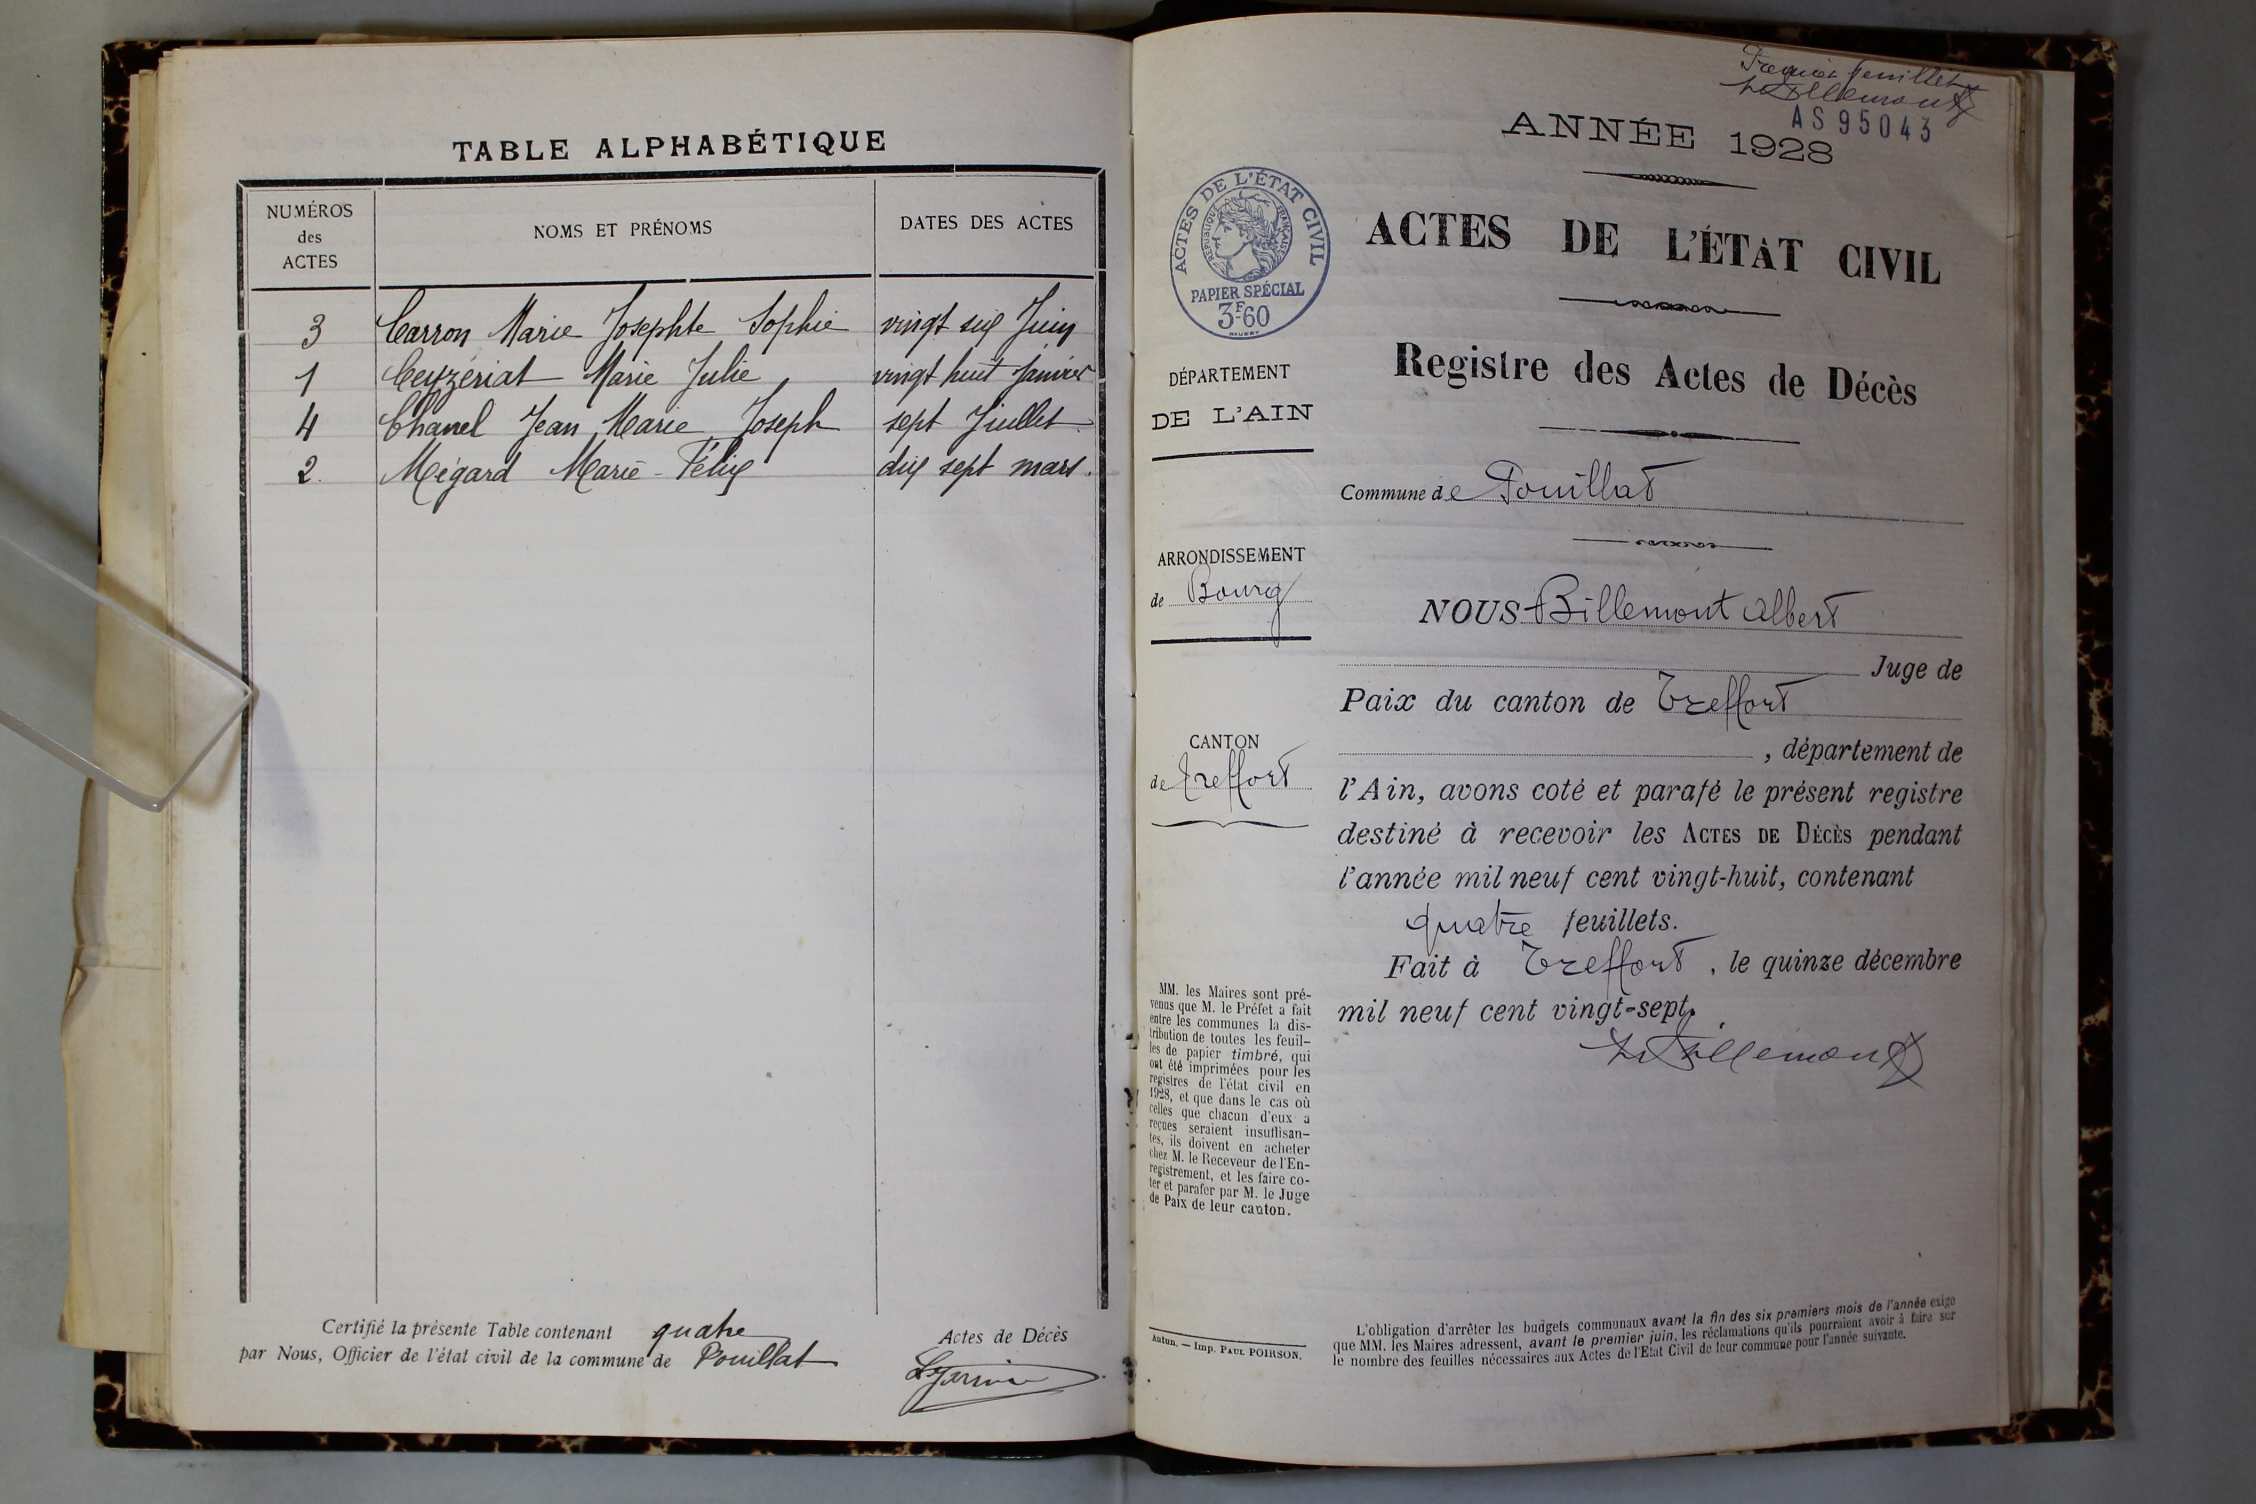 TABLE ALPHABÉTIQUE
NUMÉROS
des
ACTES
NOMS ET PRÉNOMS
DATES DES ACTES
3 Carron Marie Josephte Sophie vingt six Juin
1 Ceyzériat Marie Julie vingt huit Janvier
4 Chanel Jean Marie Joseph sept Juillet
2. Mégard Marie-Félix dix sept mars.
Certifié la présente Table contenant quatre Actes de Décès
par Nous, Officier de l'état civil de la commune de Pouillat
Premier feuillet
AS 95043
ANNÉE 1928
ACTES DE L'ÉTAT CIVIL
RÉPUBLIQUE FRANÇAISE
PAPIER SPÉCIAL
3F60
ACTES DE L'ÉTAT CIVIL
Registre des Actes de Décès
DÉPARTEMENT
DE L'AIN
Commune de Pouillat
ARRONDISSEMENT
de Bourg
NOUS Billemont Albert
Juge de
Paix du canton de Treffort
CANTON
de Treffort
, département de
l'Ain, avons coté et parafé le présent registre
destiné à recevoir les ACTES DE DÉCÈS pendant
l'année mil neuf cent vingt-huit, contenant
quatre feuillets.
Fait à Treffort, le quinze décembre
mil neuf cent vingt-sept.
MM. les Maires sont pré-
venus que M. le Préfet a fait
entre les communes la dis-
tribution de toutes les feuil-
les de papier timbré, qui
ont été imprimées pour les
registres de l'état civil en
1928, et que dans le cas où
celles que chacun d'eux a
reçues seraient insuffisan-
tes, ils doivent en acheter
chez M. le Receveur de l'En-
registrement, et les faire co-
ter et parafer par M. le Juge
de Paix de leur canton.
Autun. — Imp. PAUL POIRSON.
L'obligation d'arrêter les budgets communaux avant la fin des six premiers mois de l'année exige
que MM. les Maires adressent, avant le premier juin, les réclamations qu'ils pourraient avoir à faire sur
le nombre des feuilles nécessaires aux Actes de l'Etat Civil de leur commune pour l'année suivante.